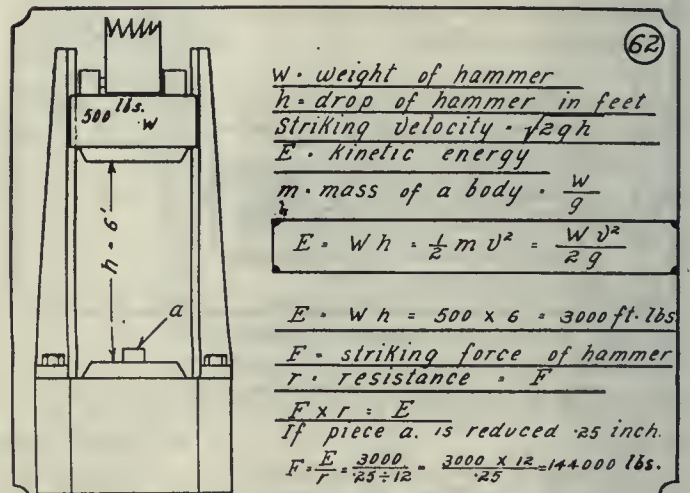 62
500 lbs.
W
h = 6'
a
W = weight of hammer
h = drop of hammer in feet
Striking Velocity = √2gh
E = Kinetic energy
m = mass of a body = W/g
E = Wh = 1/2 m v² = Wv²/2g
E = Wh = 500 x 6 = 3000 ft. lbs
F = striking force of hammer
r = resistance = F
F x r = E
If piece a. is reduced .25 inch.
F = E/r = 3000/.25÷12 = 3000 x 12/.25 = 144000 lbs.